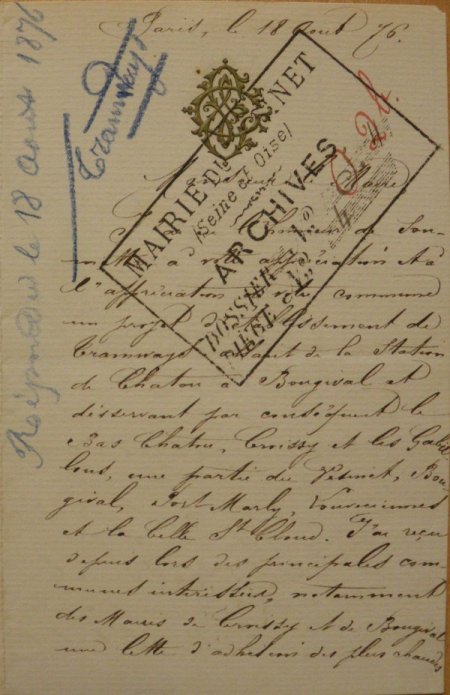 Paris, le 18 Août 76.
Répondu le 18 Août 1876
Tramways
MAIRIE DU VESINET
(Seine et Oise)
ARCHIVES
DOSSIER
PIÈCE
4
Monsieur le Maire
J'ai l'honneur de sou-
mettre à votre appréciation et à
l'appréciation de votre commune
un projet d'établissement de
Tramways partant de la Station
de Chatou à Bougival et
désservant par conséquent le
Bas Chatou, Croissy et les Gabil
lons, une partie du Vésinet, Bou
gival, Port Marly, Louveciennes
et la Celle St Cloud. J'ai reçu
depuis lors des principales com-
munes intéressées, notamment
des Maires de Croissy et de Bougival
une lettre d'adhésion des plus chaudes